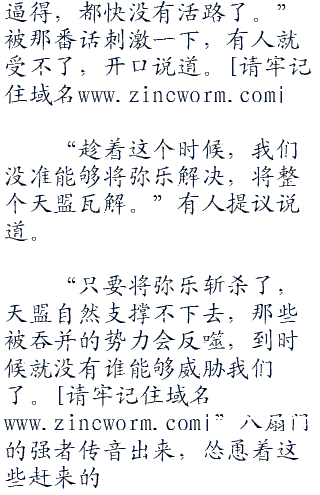 逼得，都快没有活路了。”
被那番话刺激一下，有人就
受不了，开口说道。[请牢记
住域名www.zincworm.com|
“趁着这个时候，我们
没准能够将弥乐解决，将整
个天盟瓦解。”有人提议说
道。
“只要将弥乐斩杀了，
天盟自然支撑不下去，那些
被吞并的势力会反噬，到时
候就没有谁能够威胁我们
了。[请牢记住域名
www.zincworm.com|”八扇门
的强者传音出来，怂恿着这
些赶来的